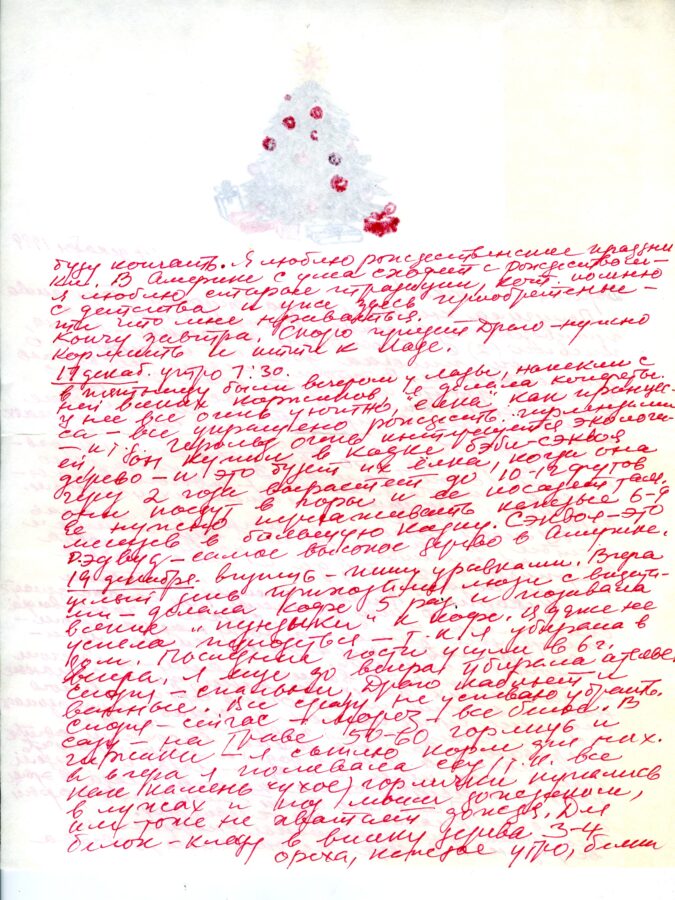 буду кончать. Я люблю рождественские праздни-
ки. В Америке с ума сходят с Рождеством.
Я люблю старые традиции, кот. помню
с детства и уже здесь приобретенные –
что мне нравиться.
Кончу завтра. Скоро придет Драго – нужно
кормить и идти к Ладе.
17 декаб. утро 7:30.
в пятницу были вечером у Лады, напекли с
ней всяких коржиков, я делала конфеты.
у нее все очень уютно, "ёлка" как принцес-
са – все украшено рождеств. гирляндами
– и т.д. Геральд очень интересуется эколог
ей. Он купил в кадке бэби-сэквоя
дерево – и это будет их ёлка, когда она
через 2 года вырастет до 10-12 футов
они поедут в горы и ее посадят там.
Ее нужно пересаживать каждые 6-9
месяцев в большую кадку. Сэквоя – это
Рэдвуд – самое высокое дерево в Америке.
19 декабря. пишу урывками. Вчера
целый день приходили люди с визита-
ми – делала кофе 5 раз и подавала
всякие "пундыки" к кофе. Даже не
успела – т.к. я убирала в
дом. Последние гости ушли в 6 ч.
вечера, я еще до вечера убирала ателье
Сегодня – спальни, Драго кабинет и
ванные. Все сразу не успеваю убрать.
Сегодня – сейчас – мороз – все бело. В
саду – на траве 50-60 горлиц и
– я сыплю корм для них.
а вчера я поливала сад, т.к. все
как камень сухое, горлички купались
в лужах и под моим дождиком,
им тоже не хватает дождя. Для
белок – кладу в вилку дерева 3-4
ореха, каждое утро, белки